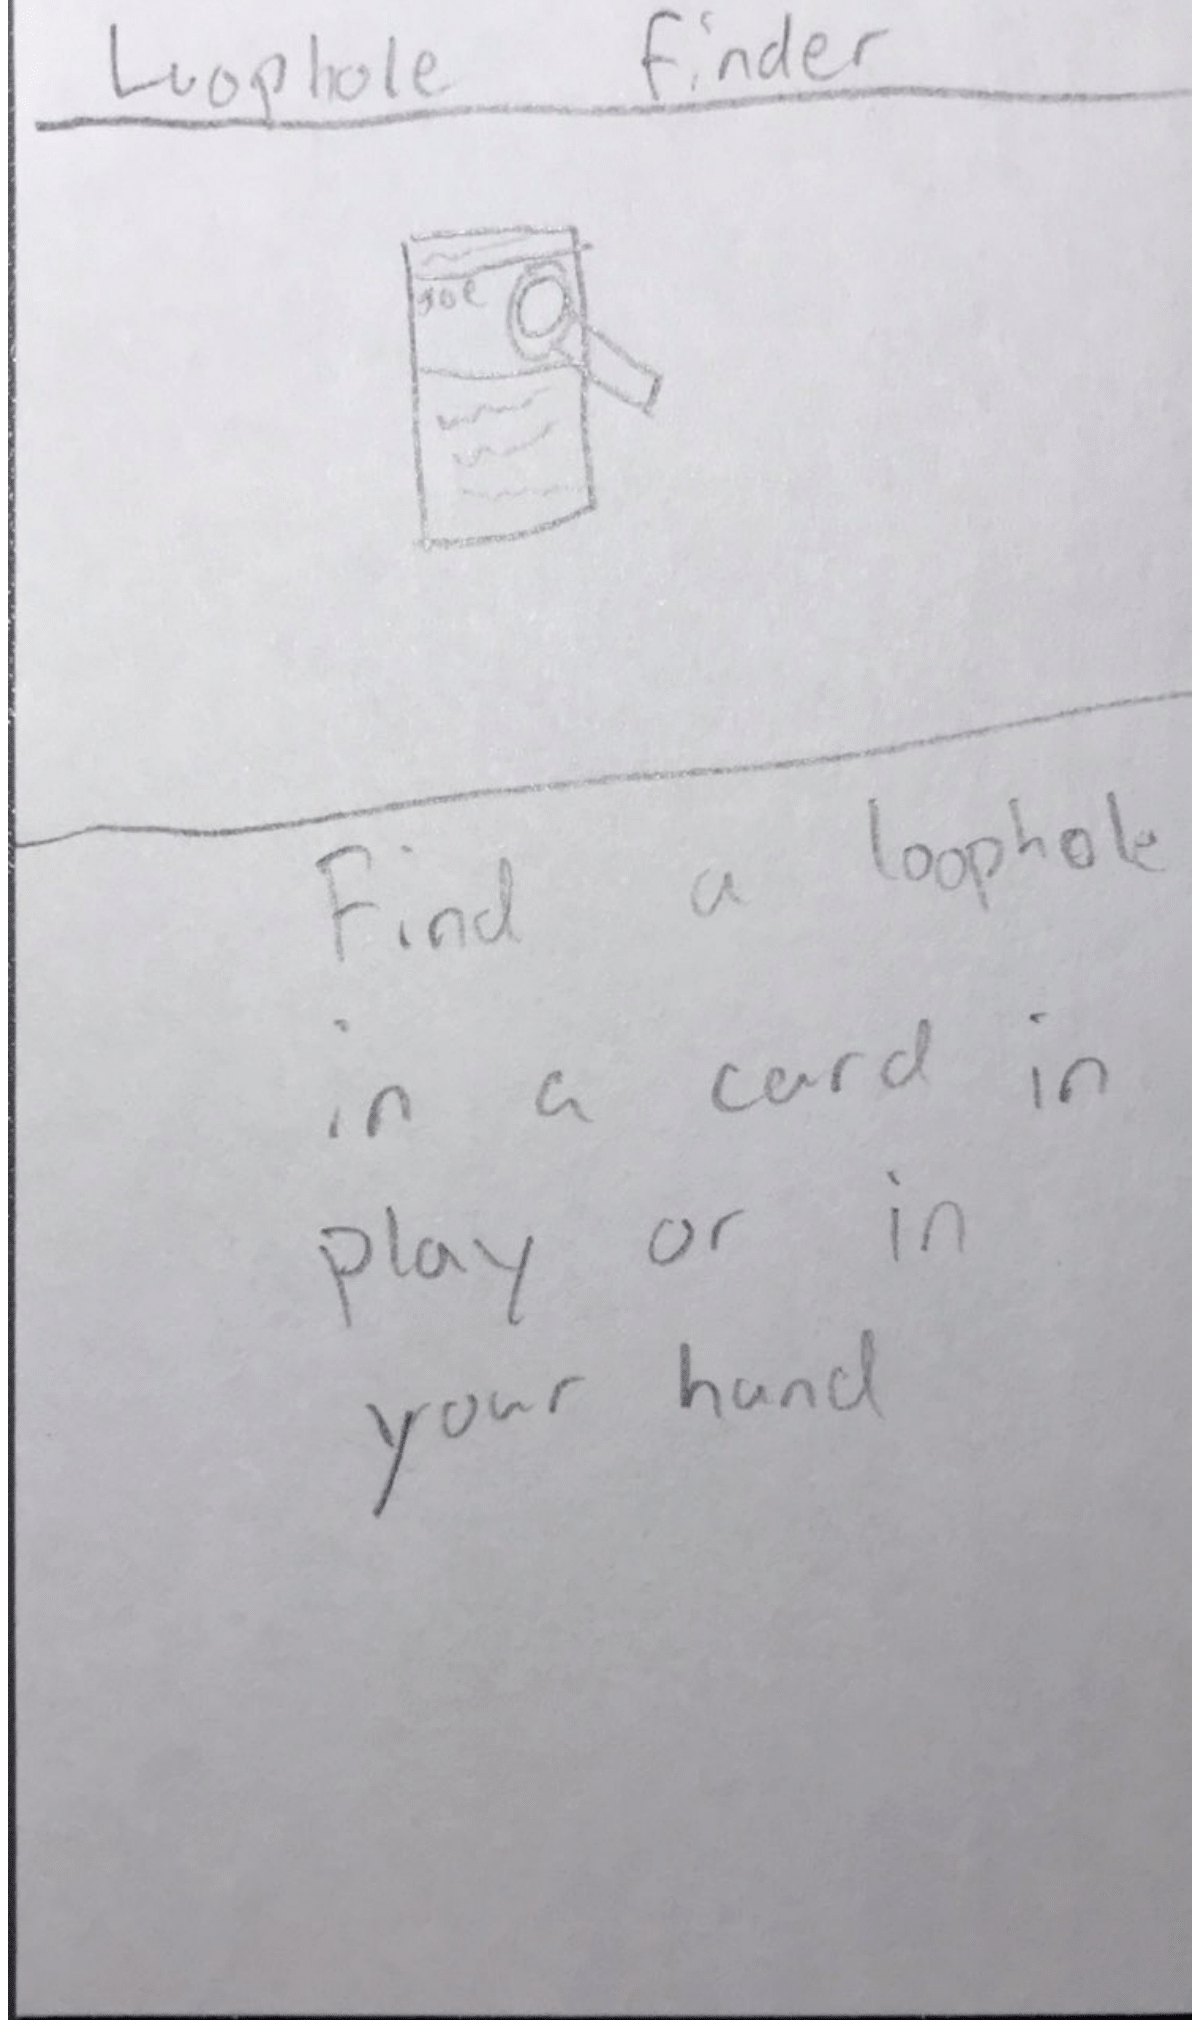 Loophole Finder
Joe
Find a loophole
in a card in
play or in
your hand